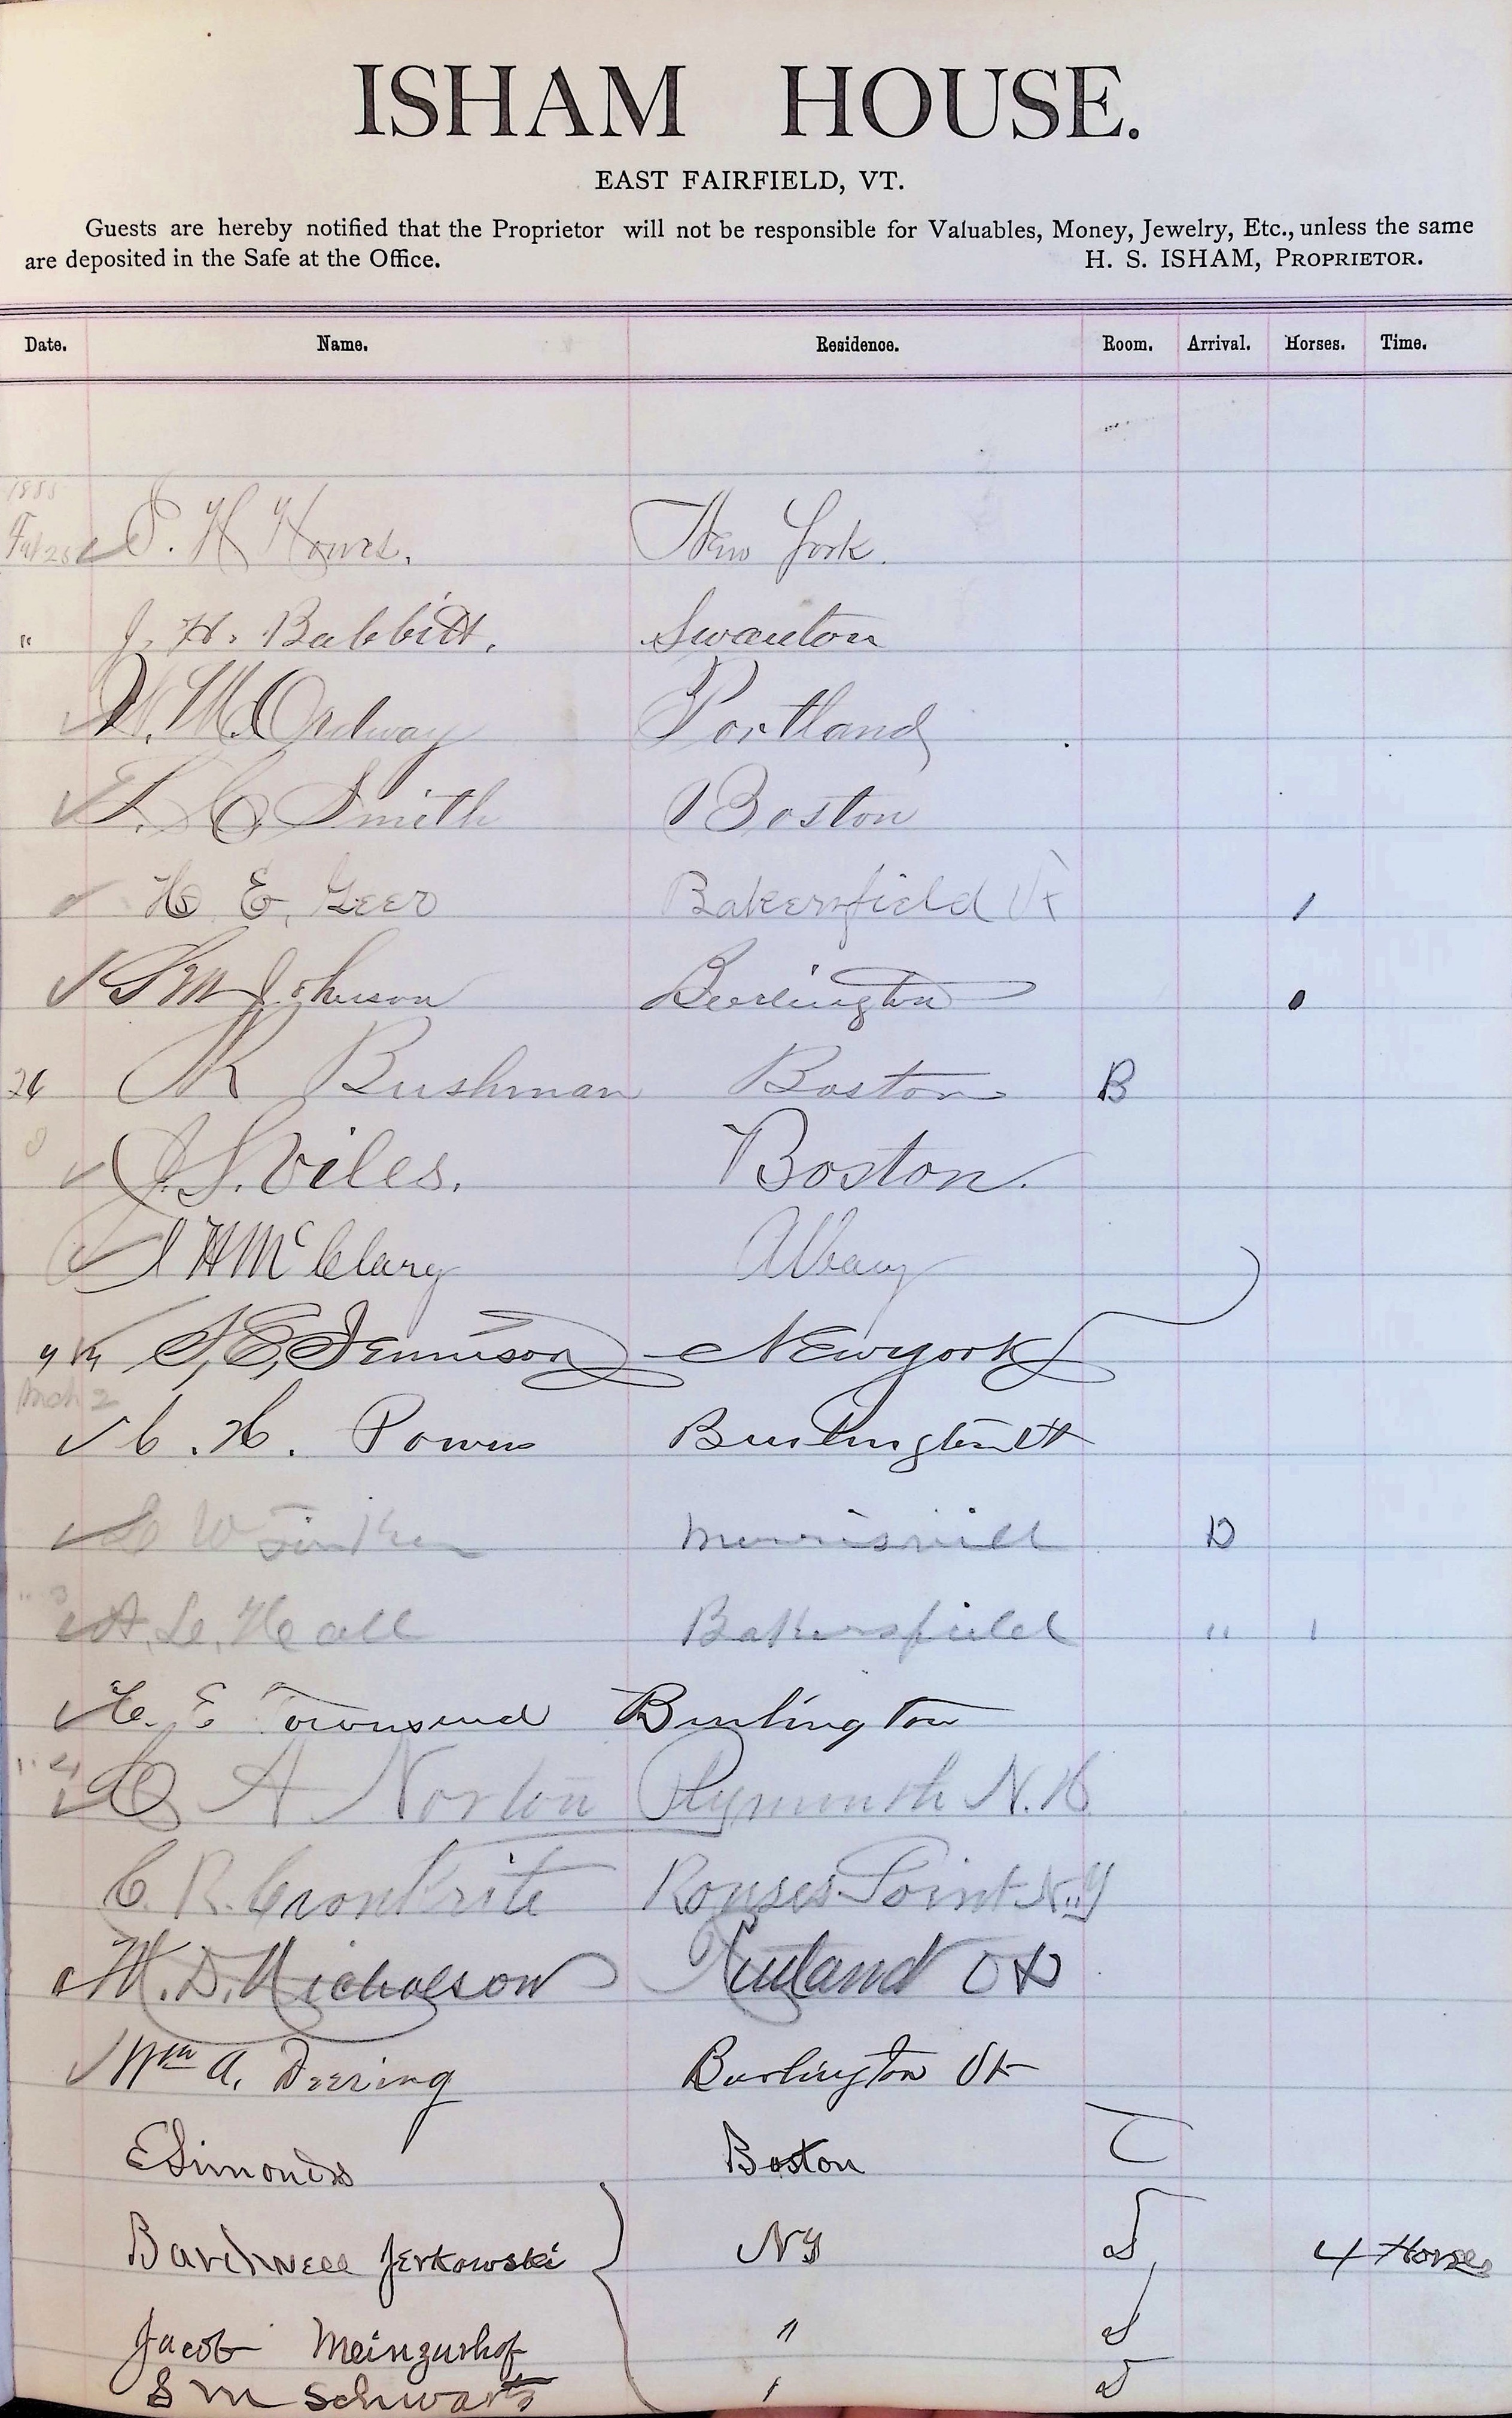 ISHAM HOUSE.
EAST FAIRFIELD, VT.
Guests are hereby notified that the Proprietor will not be responsible for Valuables, Money, Jewelry, Etc., unless the same
are deposited in the Safe at the Office. H. S. ISHAM, PROPRIETOR.
Date. Name. Residence. Room. Arrival. Horses. Time.
1885
25 H Howes. New York.
" J. H. Babbitt. Swanton
W. M. Ordway Portland
F. C. Smith Boston
H. E. Geer Bakersfield Vt 1
S M Johnson Burlington
26 R Bushman Boston B
J. S. Viles. Boston.
J H McClary Albany
S, E, Jennison New york
Mch 2
C. H. Powers Burlington Vt
W Morrisvill D
" 3
A. L. Hall Bakersfield " 1
H. E Townsend Burlington
" 4
C A Norton Plymouth N. H
C. R. Cronkrite Rouses Point N. Y
M. D. Nicholson Rutland
Wm A. Deering Burlington Vt
E Simonds Boston
Bardwell Jerkowski NY 4 Horses
Jacob Meinzurhof "
S M Schwarts "